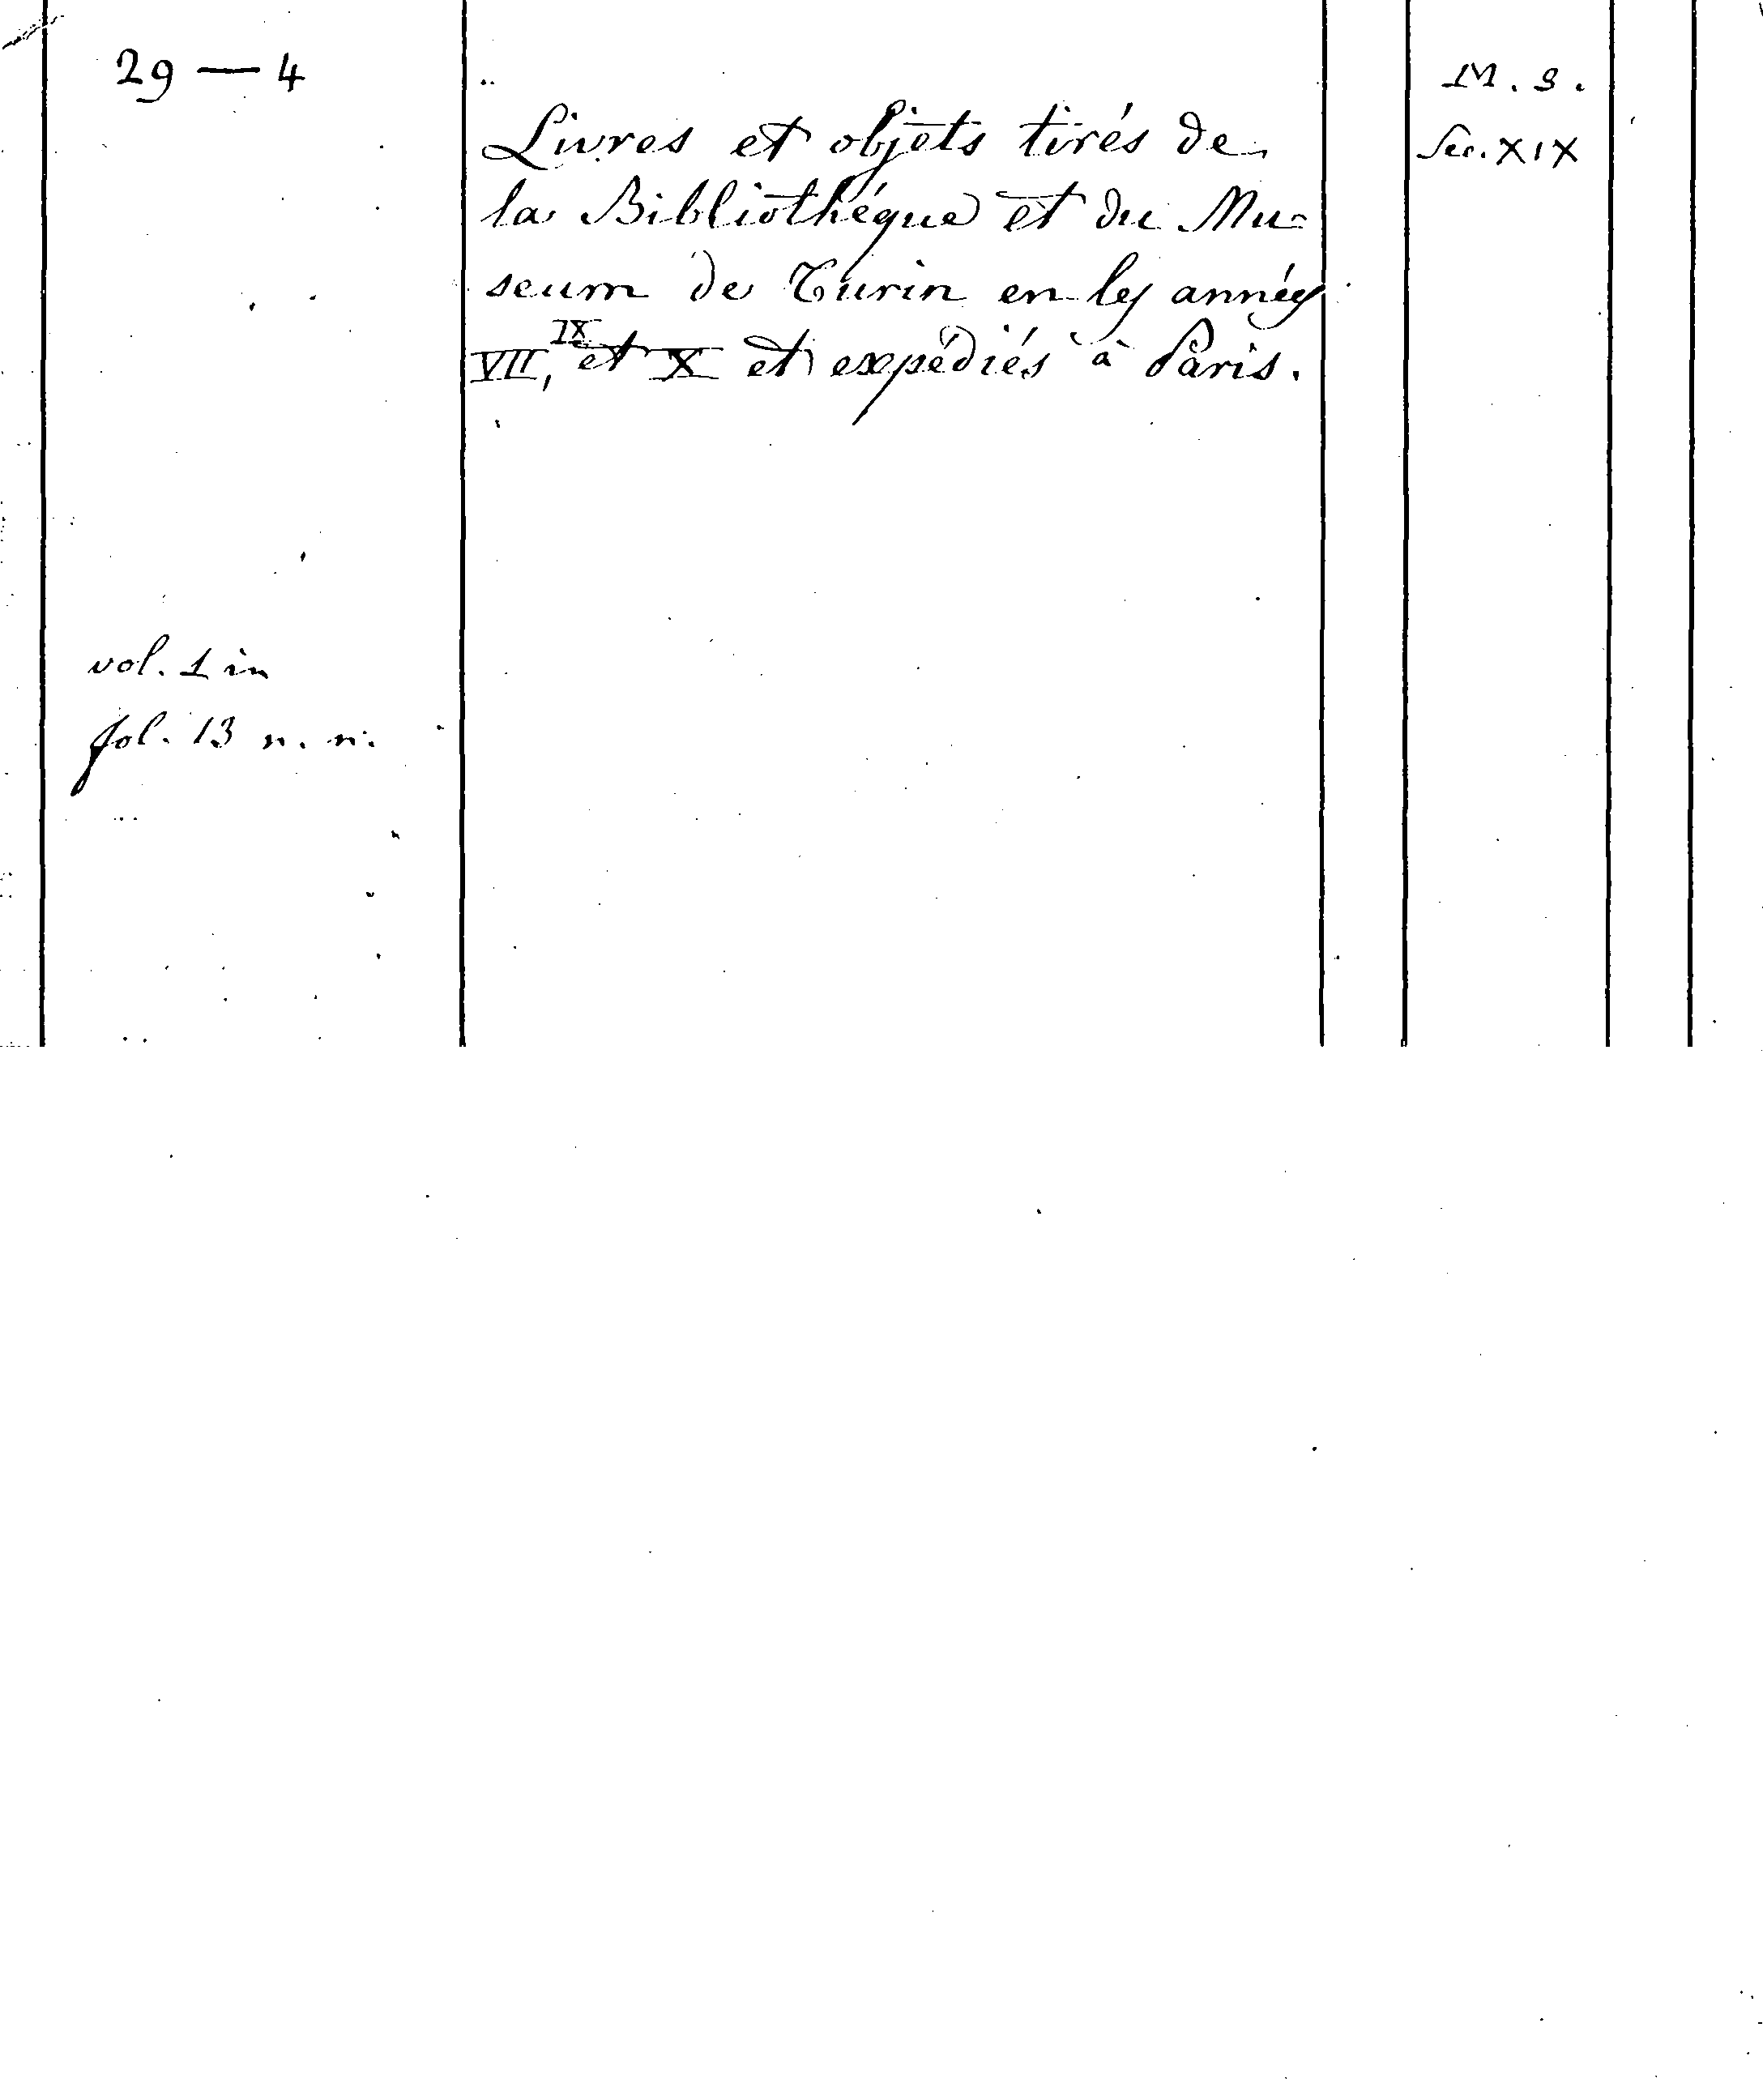 29 — 4
Livres et objets tirés de
la Bibliothéque et du Mu=
seum de Turin en les années
VII, IX et X et expédiés à Paris.
M. S.
Sec. XIX
vol. 1 in
fol. 13 n. n.